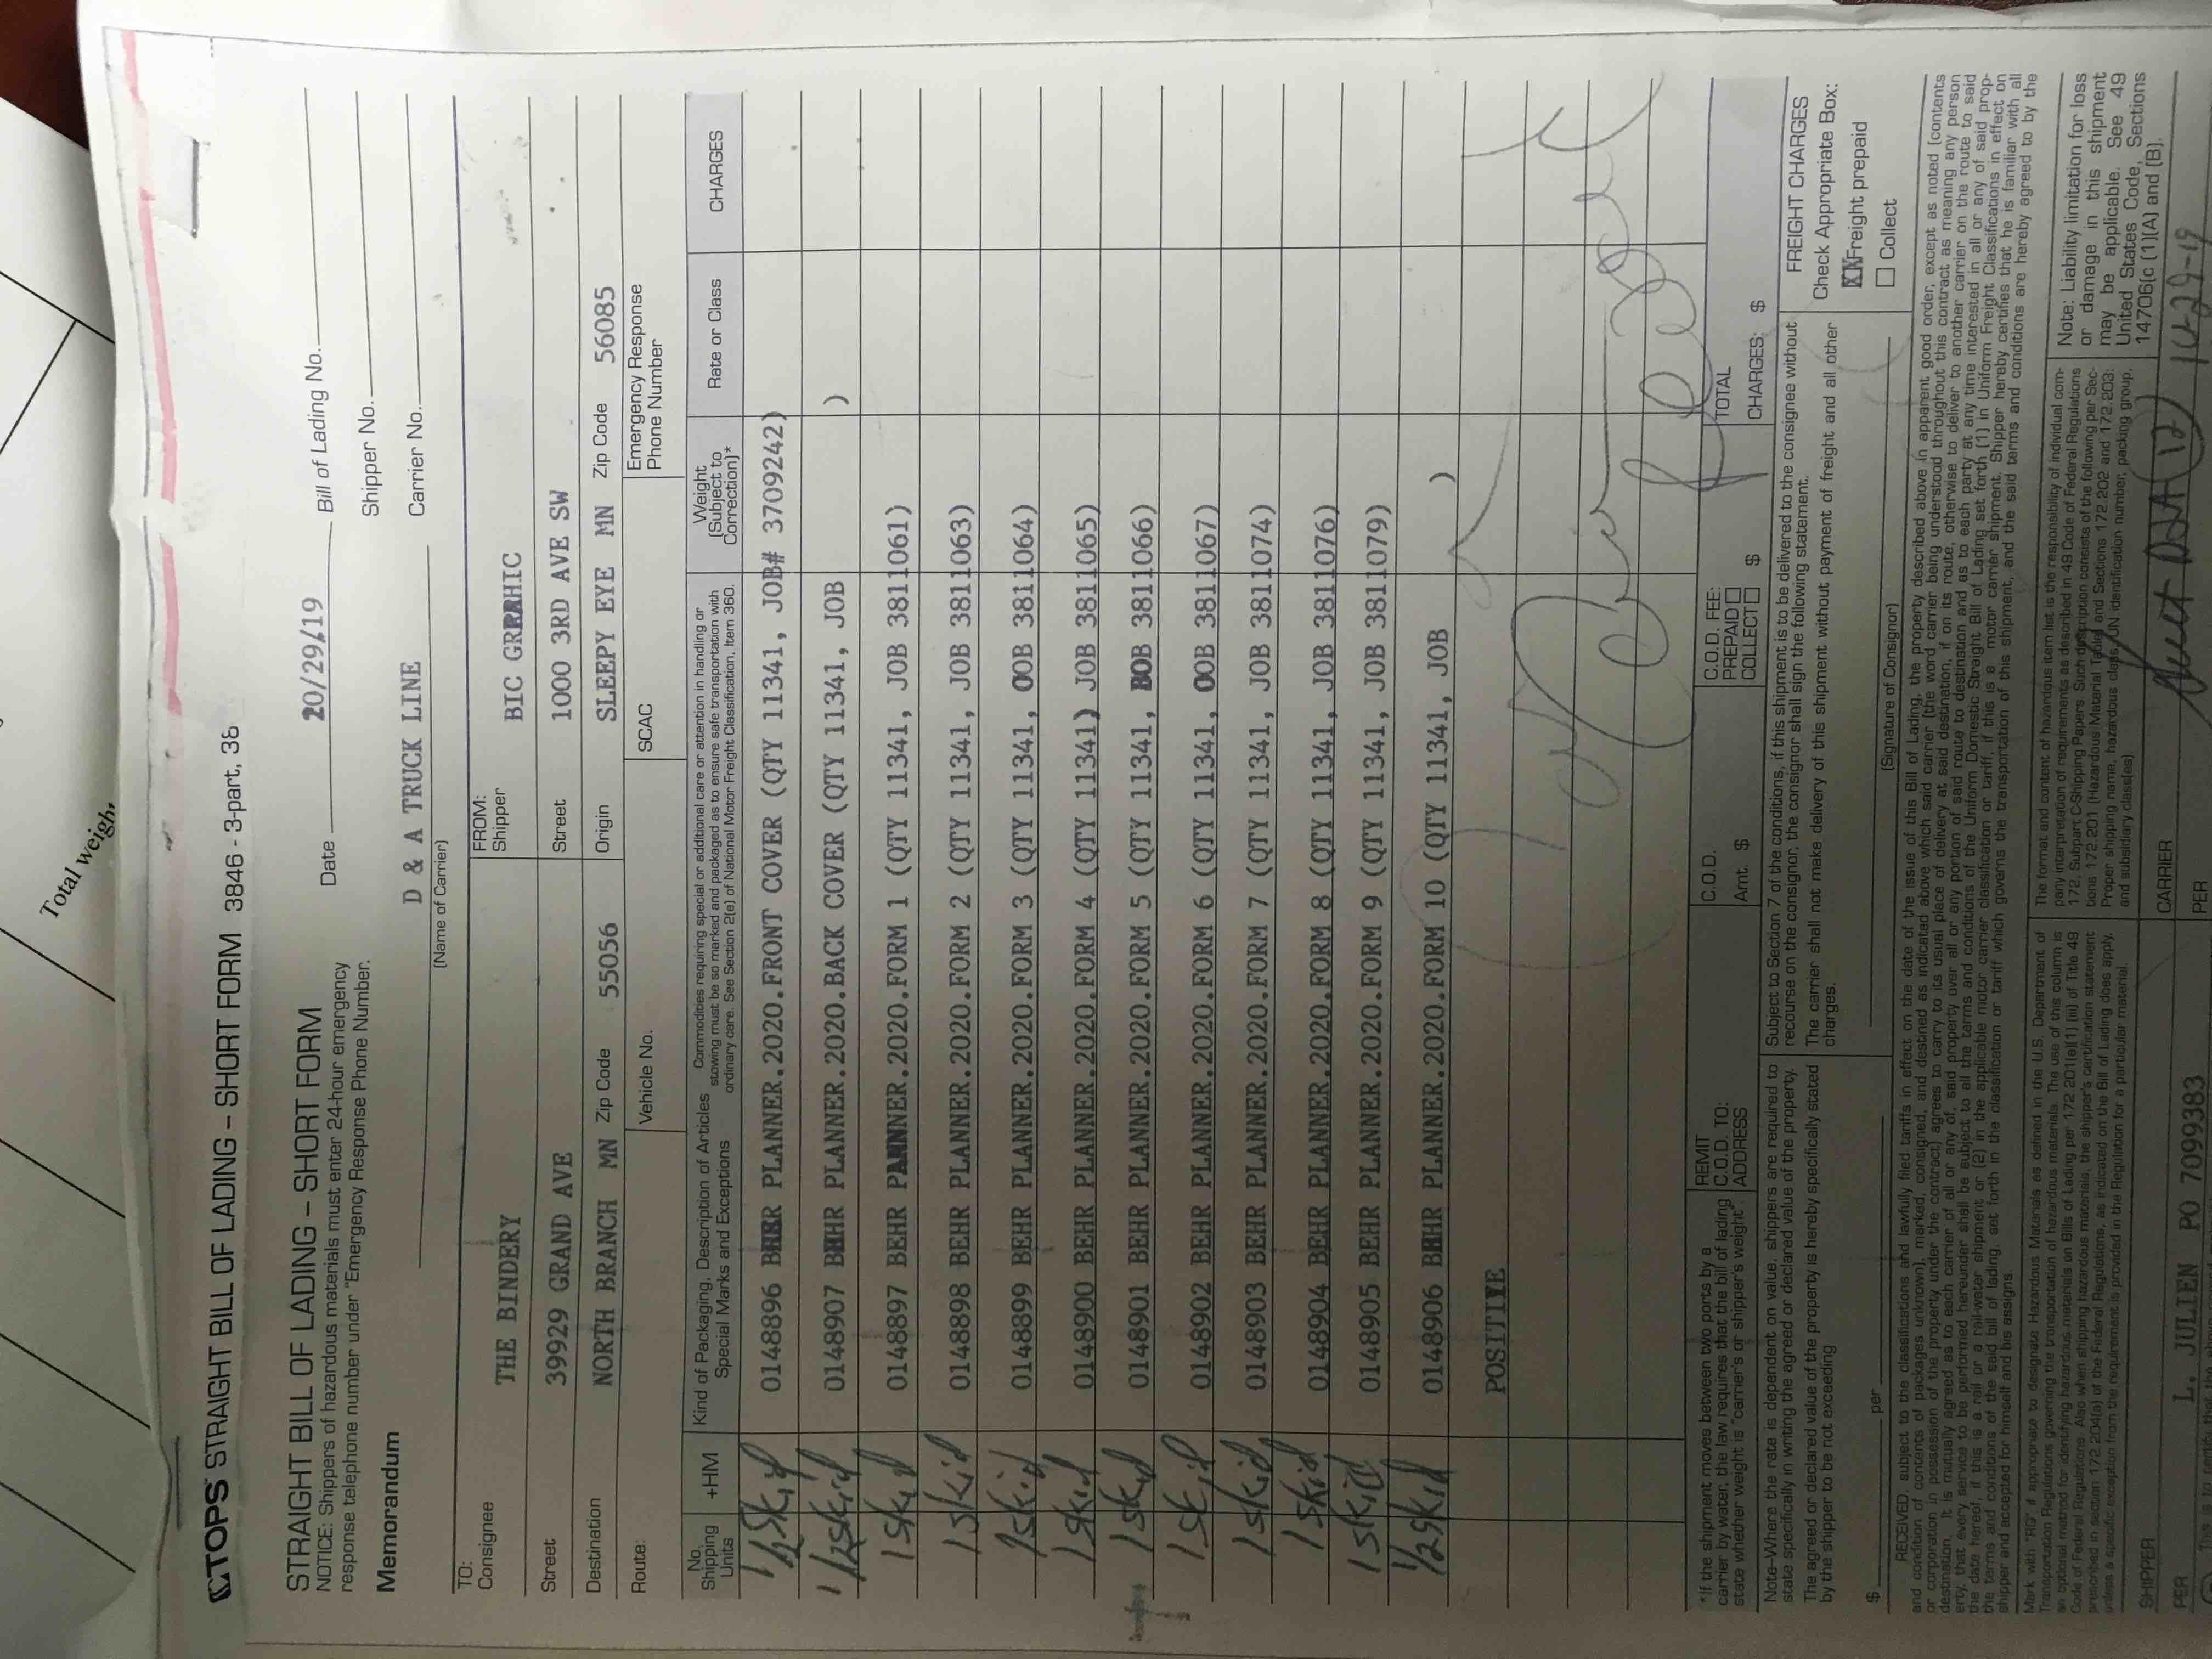 Total weight
TOPS STRAIGHT BILL OF LADING – SHORT FORM 3846 - 3-part, 38
STRAIGHT BILL OF LADING – SHORT FORM
NOTICE: Shippers of hazardous materials must enter 24-hour emergency
response telephone number under "Emergency Response Phone Number.
Memorandum
Date 20/29/19 Bill of Lading No.
Shipper No.
D & A TRUCK LINE Carrier No.
(Name of Carrier)
TO: Consignee THE BINDERY FROM: Shipper BIC
Street 39929 GRAND AVE Street 1000 3RD AVE SW
Destination NORTH BRANCH MN Zip Code 55056 Origin SLEEPY EYE MN Zip Code 56085
Route: Vehicle No. SCAC Emergency Response Phone Number
No. Shipping Units +HM Kind of Packaging, Description of Articles Special Marks and Exceptions Commodities requiring special or additional care or attention in handling or stowing must be so marked and packaged as to ensure safe transportation with ordinary care. See Section 2(e) of National Motor Freight Classification, Item 360. Weight (Subject to Correction)* Rate or Class CHARGES
1/2 skid 0148896 PLANNER.2020.FRONT COVER (QTY 11341, JOB# 3709242)
1/2 skid 0148907 BEHR PLANNER.2020.BACK COVER (QTY 11341, JOB )
1 skid 0148897 BEHR PLANNER.2020.FORM 1 (QTY 11341, JOB 3811061)
1 skid 0148898 BEHR PLANNER.2020.FORM 2 (QTY 11341, JOB 3811063)
1 skid 0148899 BEHR PLANNER.2020.FORM 3 (QTY 11341, OOB 3811064)
1 skid 0148900 BEHR PLANNER.2020.FORM 4 (QTY 11341) JOB 3811065)
1 skid 0148901 BEHR PLANNER.2020.FORM 5 (QTY 11341, BOB 3811066)
1 skid 0148902 BEHR PLANNER.2020.FORM 6 (QTY 11341, OOB 3811067)
1 skid 0148903 BEHR PLANNER.2020.FORM 7 (QTY 11341, JOB 3811074)
1 skid 0148904 BEHR PLANNER.2020.FORM 8 (QTY 11341, JOB 3811076)
1 skid 0148905 BEHR PLANNER.2020.FORM 9 (QTY 11341, JOB 3811079)
1/2 skid 0148906 BEHR PLANNER.2020.FORM 10 (QTY 11341, JOB )
POSITIVE
*If the shipment moves between two ports by a carrier by water, the law requires that the bill of lading state whether weight is "carrier's or shipper's weight"
REMIT C.O.D. TO: ADDRESS
C.O.D. Amt. $
C.O.D. FEE: PREPAID COLLECT $
TOTAL CHARGES: $
Note–Where the rate is dependent on value, shippers are required to state specifically in writing the agreed or declared value of the property.
The agreed or declared value of the property is hereby specifically stated by the shipper to be not exceeding
$ per
Subject to Section 7 of the conditions, if this shipment is to be delivered to the consignee without recourse on the consignor, the consignor shall sign the following statement.
The carrier shall not make delivery of this shipment without payment of freight and all other charges.
(Signature of Consignor)
FREIGHT CHARGES
Check Appropriate Box:
XX Freight prepaid
Collect
RECEIVED, subject to the classifications and lawfully filed tariffs in effect on the date of the issue of this Bill of Lading, the property described above in apparent good order, except as noted (contents
and condition of contents of packages unknown), marked, consigned, and destined as indicated above which said carrier (the word carrier being understood throughout this contract as meaning any person
or corporation in possession of the property under the contract) agrees to carry to its usual place of delivery at said destination, if on its route, otherwise to deliver to another carrier on the route to said
destination. It is mutually agreed as to each carrier of all or any of, said property over all or any portion of said route to destination and as to each party at any time interested in all or any of said prop-
erty, that every service to be performed hereunder shall be subject to all the terms and conditions of the Uniform Domestic Straight Bill of Lading set forth (1) in Uniform Freight Classifications in effect on
the date hereof, if this is a rail or a rail-water shipment or (2) in the applicable motor carrier classification or tariff, if this is a motor carrier shipment. Shipper hereby certifies that he is familiar with all
the terms and conditions of the said bill of lading, set forth in the classification or tariff which governs the transportation of this shipment, and the said terms and conditions are hereby agreed to by the
shipper and accepted for himself and his assigns
Mark with "RQ" if appropriate to designate Hazardous Materials as defined in the U.S. Department of Transportation Regulations governing the transportation of hazardous materials. The use of this column is an optional method for identifying hazardous materials on Bills of Lading per 172.201(a)(1)(iii) of Title 49 Code of Federal Regulations. Also when shipping hazardous materials, the shipper's certification statement prescribed in section 172.204(a) of the Federal Regulations, as indicated on the Bill of Lading does apply, unless a specific exception from the requirement is provided in the Regulation for a particular material.
The format and content of hazardous item list is the responsibility of individual company interpretation of requirements as described in 49 Code of Federal Regulations 172, Subpart C-Shipping Papers. Such description consists of the following per Sections 172.201 (Hazardous Material Table) and Sections 172.202 and 172.203: Proper shipping name, hazardous class, UN identification number, packing group, and subsidiary class(es)
Note: Liability limitation for loss or damage in this shipment may be applicable. See 49 United States Code, Sections 14706(c)(1)(A) and (B).
SHIPPER CARRIER
PER L. JULIEN PO 7099383 PER